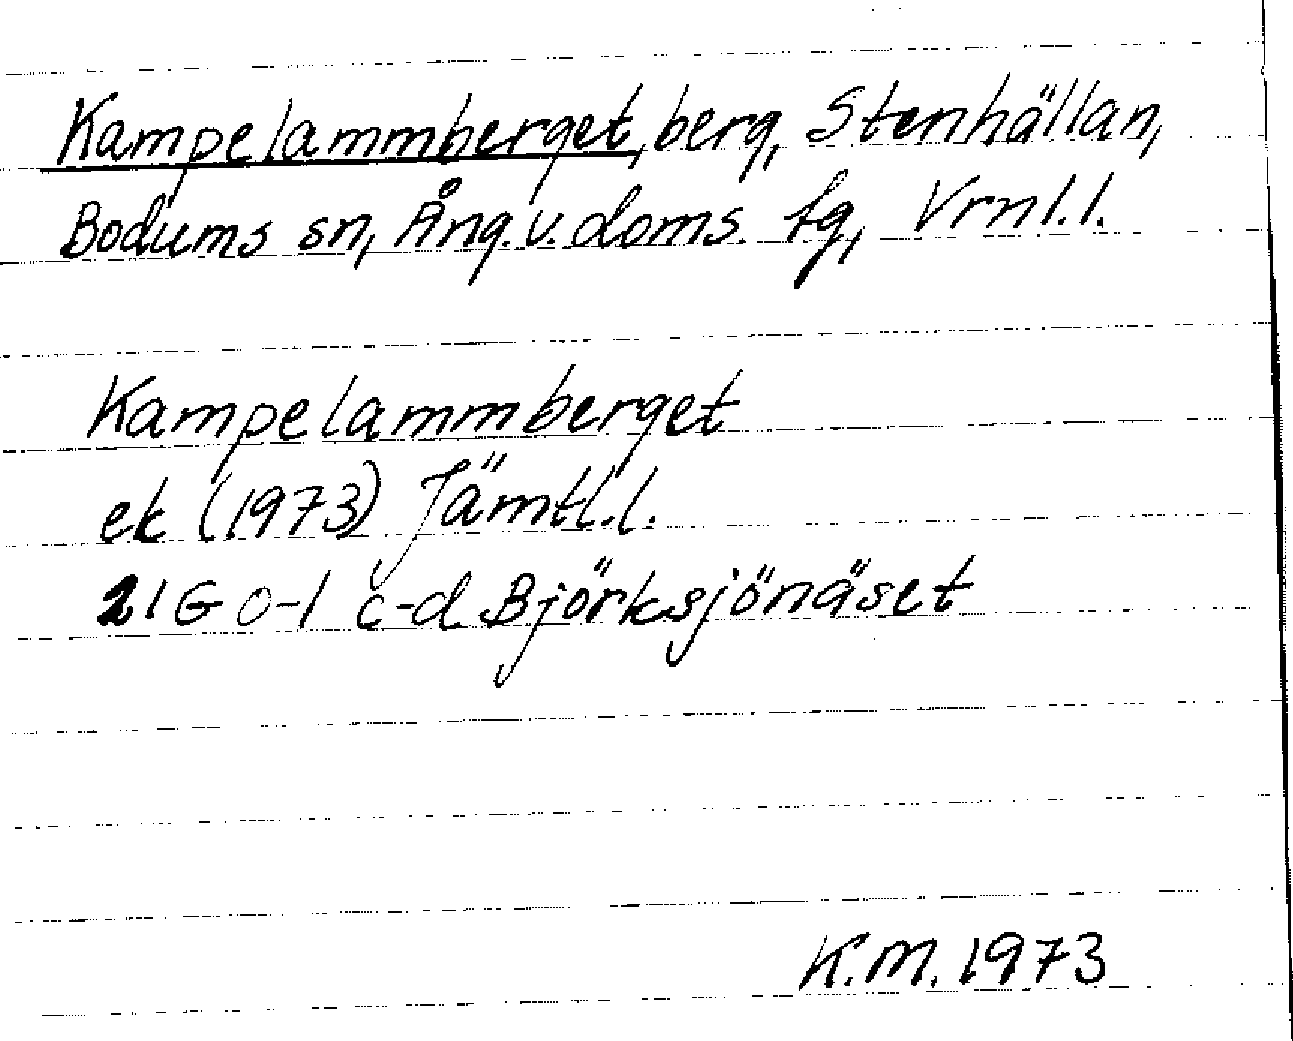 Kampelammberget, berg, Stenhällan,
Bodums sn, Ång. v. doms. fg, Vrnl.l.
Kampelammberget
ek (1973) Jämtl.l.
21G 0-1 c-d Björksjönäset
K.M. 1973